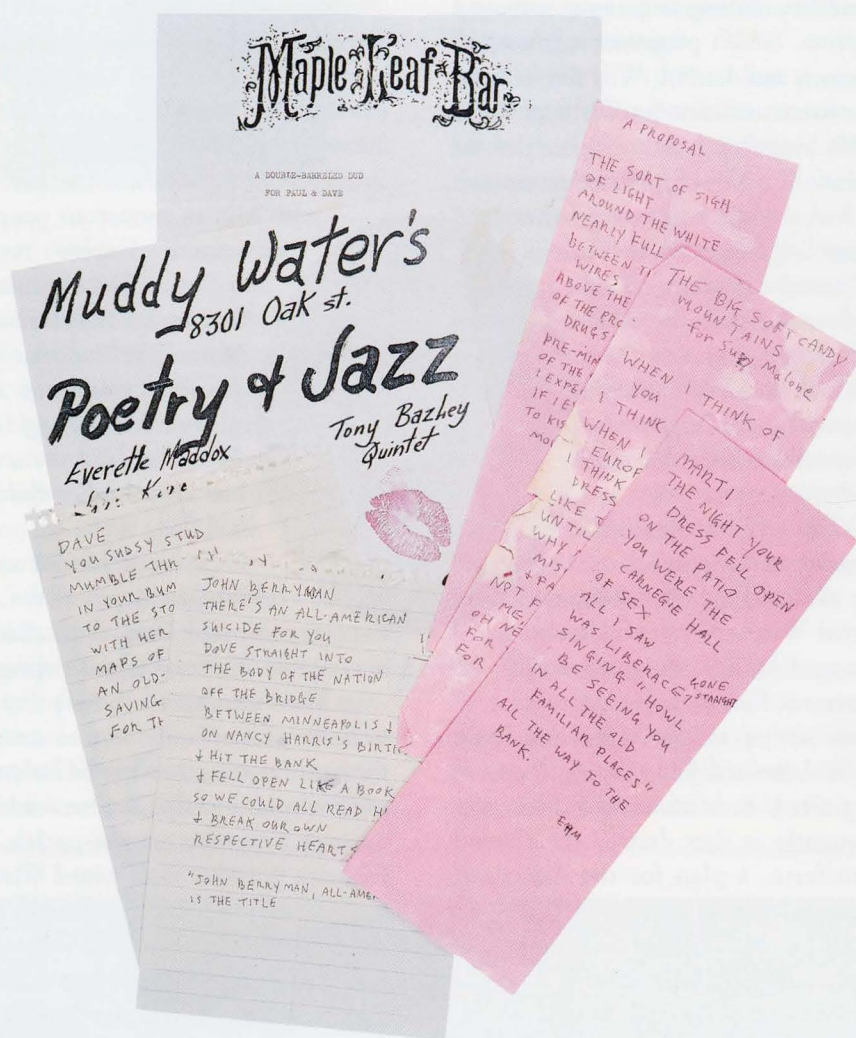 Maple Leaf Bar
A DOUBLE-BARRELED DUD
FOR PAUL & DAVE
Muddy Water's
8301 Oak st.
Poetry & Jazz
Everette Maddox
Tony Bazhey
Quintet
DAVE
YOU SUDSY STUD
MUMBLE
IN YOUR BUM
TO THE STO
WITH HER
MAPS OF
AN OLD-
SAVING
FOR TH
JOHN BERRYMAN
THERE'S AN ALL-AMERICAN
SUICIDE FOR YOU
DOVE STRAIGHT INTO
THE BODY OF THE NATION
OFF THE BRIDGE
BETWEEN MINNEAPOLIS &
ON NANCY HARRIS'S BIRTH
& HIT THE BANK
& FELL OPEN LIKE A BOOK
SO WE COULD ALL READ HI
& BREAK OUR OWN
RESPECTIVE HEARTS
"JOHN BERRYMAN, ALL-AMER
IS THE TITLE
A PROPOSAL
THE SORT OF SIGH
OF LIGHT
AROUND THE WHITE
NEARLY FULL
BETWEEN T
WIRES
ABOVE THE
OF THE PRO
DRUGS
PRE-MIN
OF THE
I EXPE
IF I E
TO KIS
MO
THE BIG SOFT CANDY
MOUNTAINS
for Suzy Malone
WHEN I THINK OF
YOU
I THINK
WHEN I
EUROP
I THINK
DRESS
LIKE
UNTIL
WHY
MIS
& PA
NOT F
ME
OH NE
FOR
FOR
MARTI
THE NIGHT YOUR
DRESS FELL OPEN
ON THE PATIO
YOU WERE THE
CARNEGIE HALL
OF SEX
ALL I SAW
WAS LIBERACE GONE STRAIGHT
SINGING "HOWL
BE SEEING YOU
IN ALL THE OLD
FAMILIAR PLACES"
ALL THE WAY TO THE
BANK.
EHM